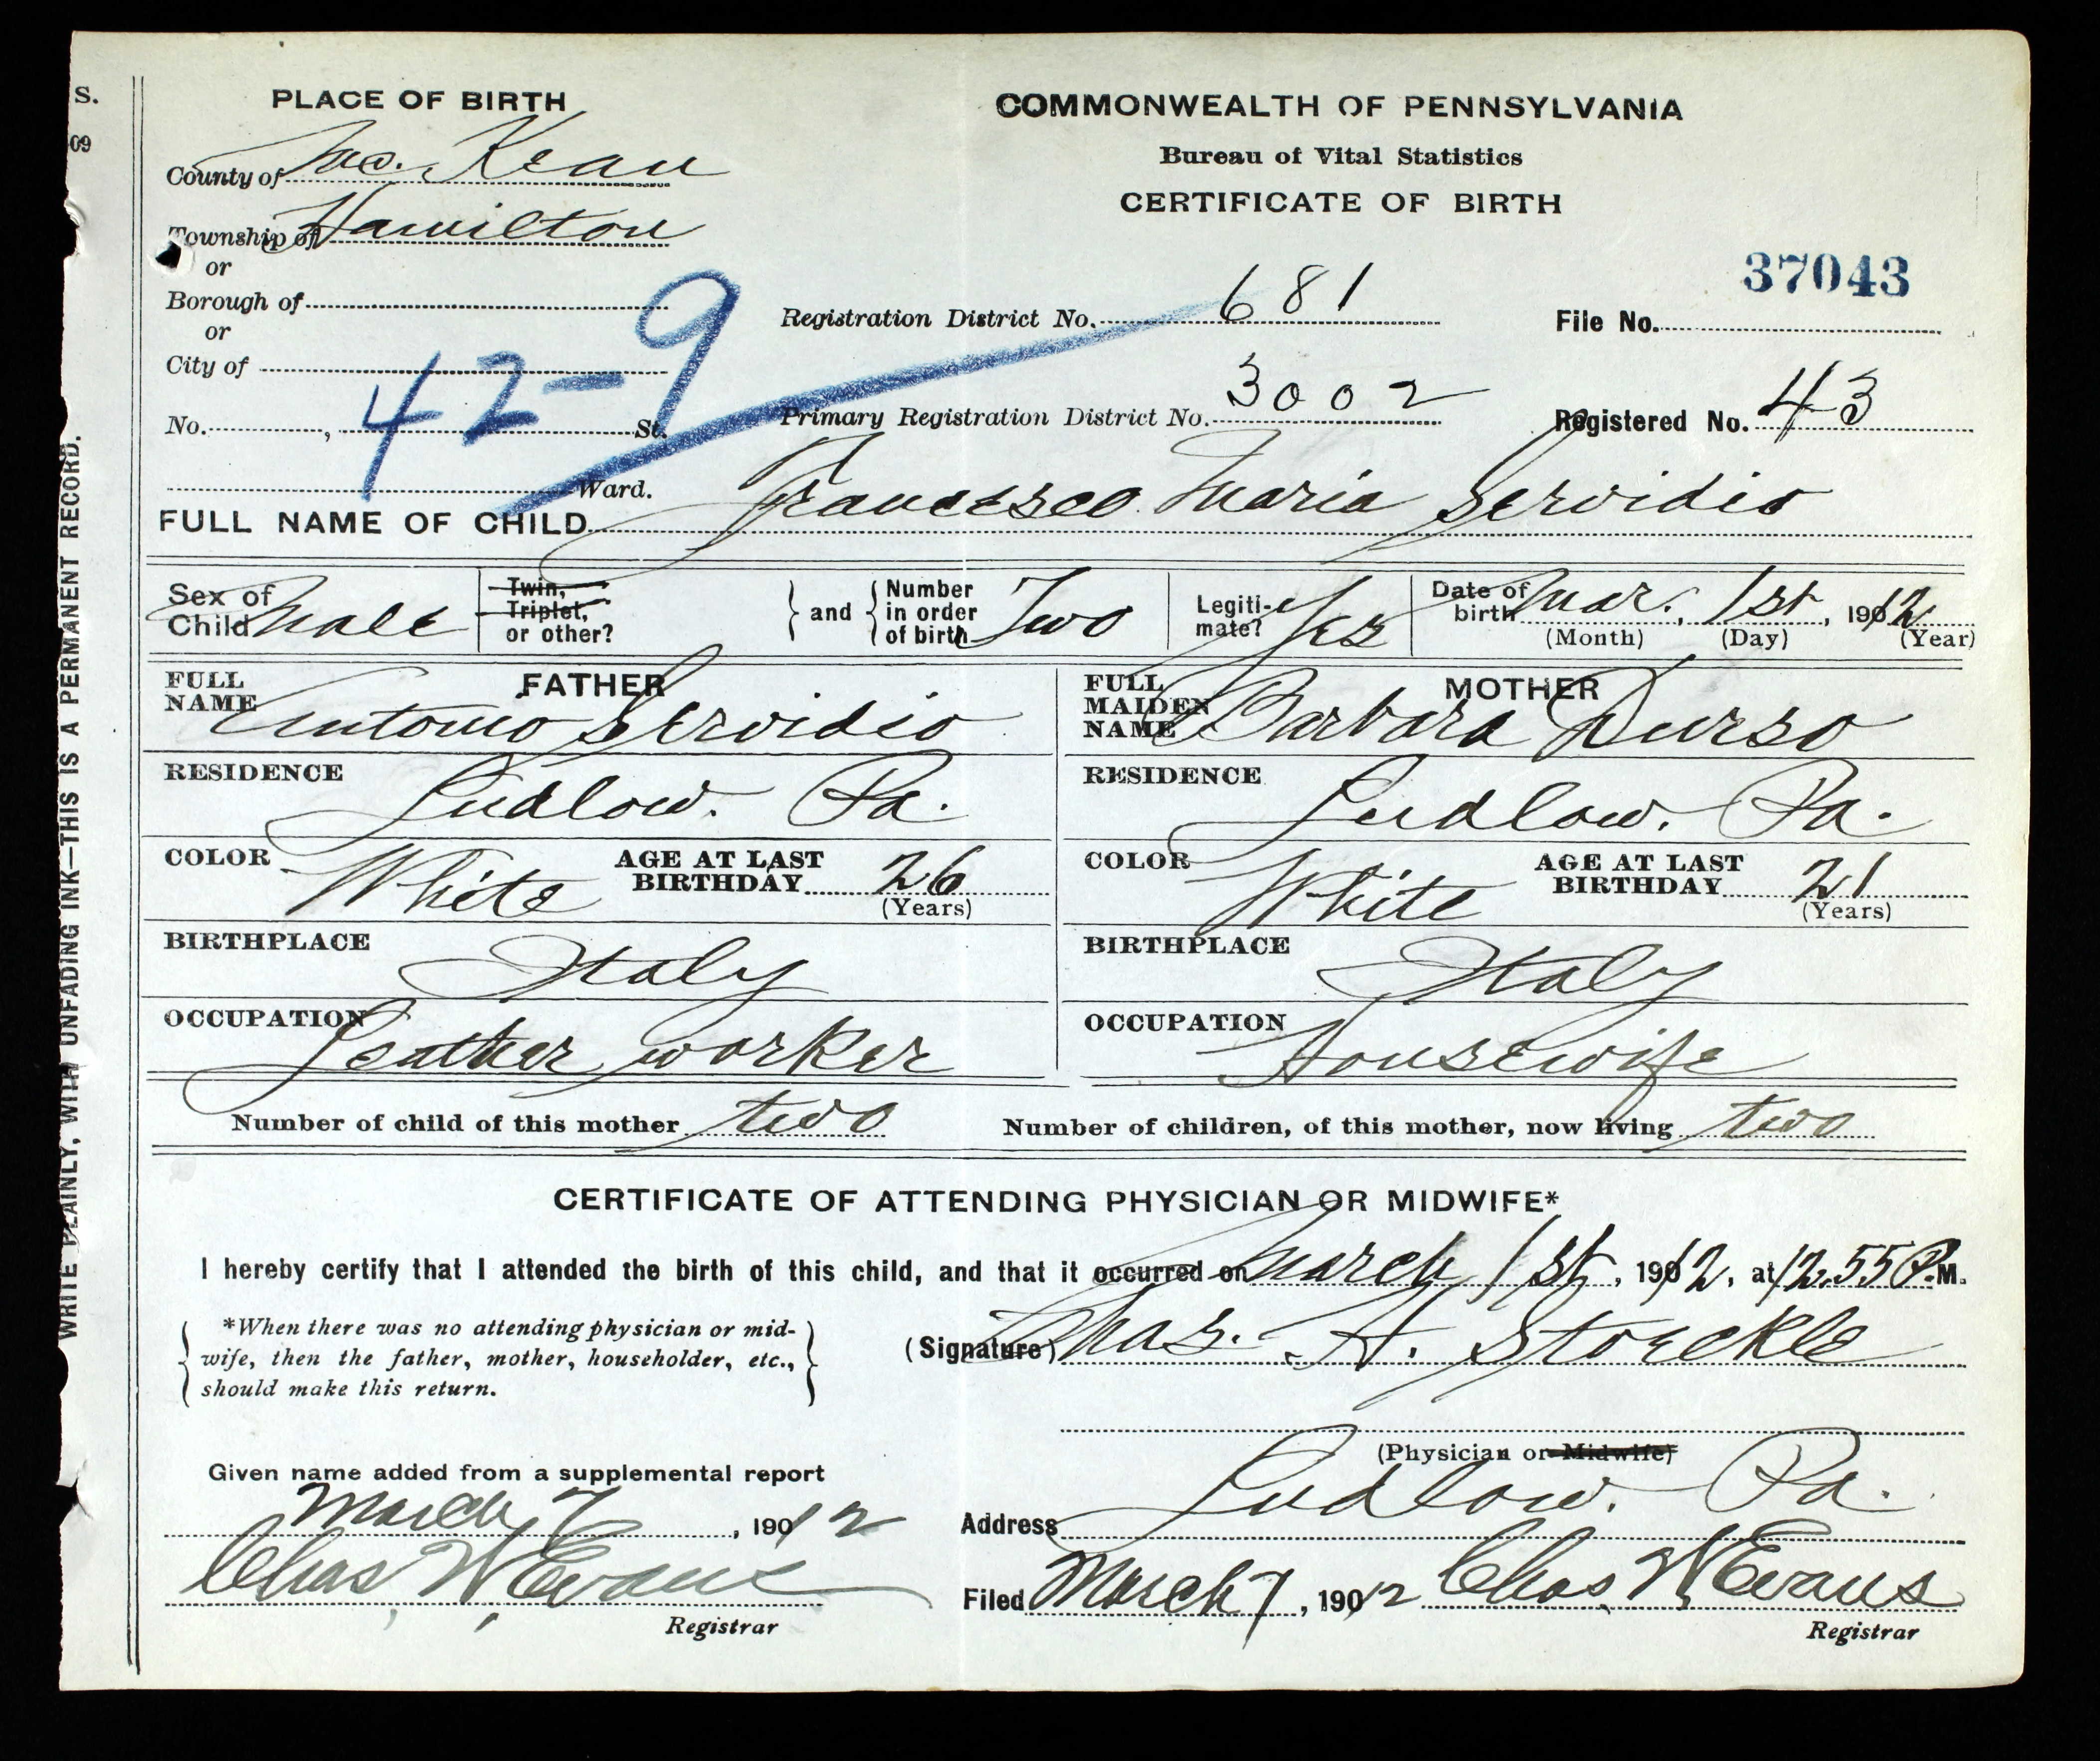 S.
09
WRITE PLAINLY, WITH UNFADING INK—THIS IS A PERMANENT RECORD.
PLACE OF BIRTH
County of Mc. Kean
Township of Hamilton
or
Borough of
or
City of
No. , St.
Ward.
42-9
COMMONWEALTH OF PENNSYLVANIA
Bureau of Vital Statistics
CERTIFICATE OF BIRTH
37043
Registration District No. 681
File No.
Primary Registration District No. 3002
Registered No. 43
FULL NAME OF CHILD Francesco. Maria Servidio
Sex of Child Male
Twin, Triplet, or other?
and Number in order of birth Two
Legiti- mate? Yes
Date of birth Mar. 1st, 1912
(Month) (Day) (Year)
FATHER
FULL NAME Antonio Servidio
RESIDENCE Ludlow. Pa.
COLOR White AGE AT LAST BIRTHDAY 26
(Years)
BIRTHPLACE Italy
OCCUPATION Leather worker
MOTHER
FULL MAIDEN NAME Barbara Durso
RESIDENCE Ludlow. Pa.
COLOR White AGE AT LAST BIRTHDAY 21
(Years)
BIRTHPLACE Italy
OCCUPATION Housewife
Number of child of this mother two
Number of children, of this mother, now living two
CERTIFICATE OF ATTENDING PHYSICIAN OR MIDWIFE*
I hereby certify that I attended the birth of this child, and that it occurred on March 1st, 1912, at 12.55 P.M.
*When there was no attending physician or mid-
wife, then the father, mother, householder, etc.,
should make this return.
(Signature) Chas. A. Stoeckle
(Physician or Midwife)
Given name added from a supplemental report
March 7, 1912
Chas, W, Evans
Registrar
Address Ludlow. Pa.
Filed March 7, 1912 Chas, W, Evans
Registrar